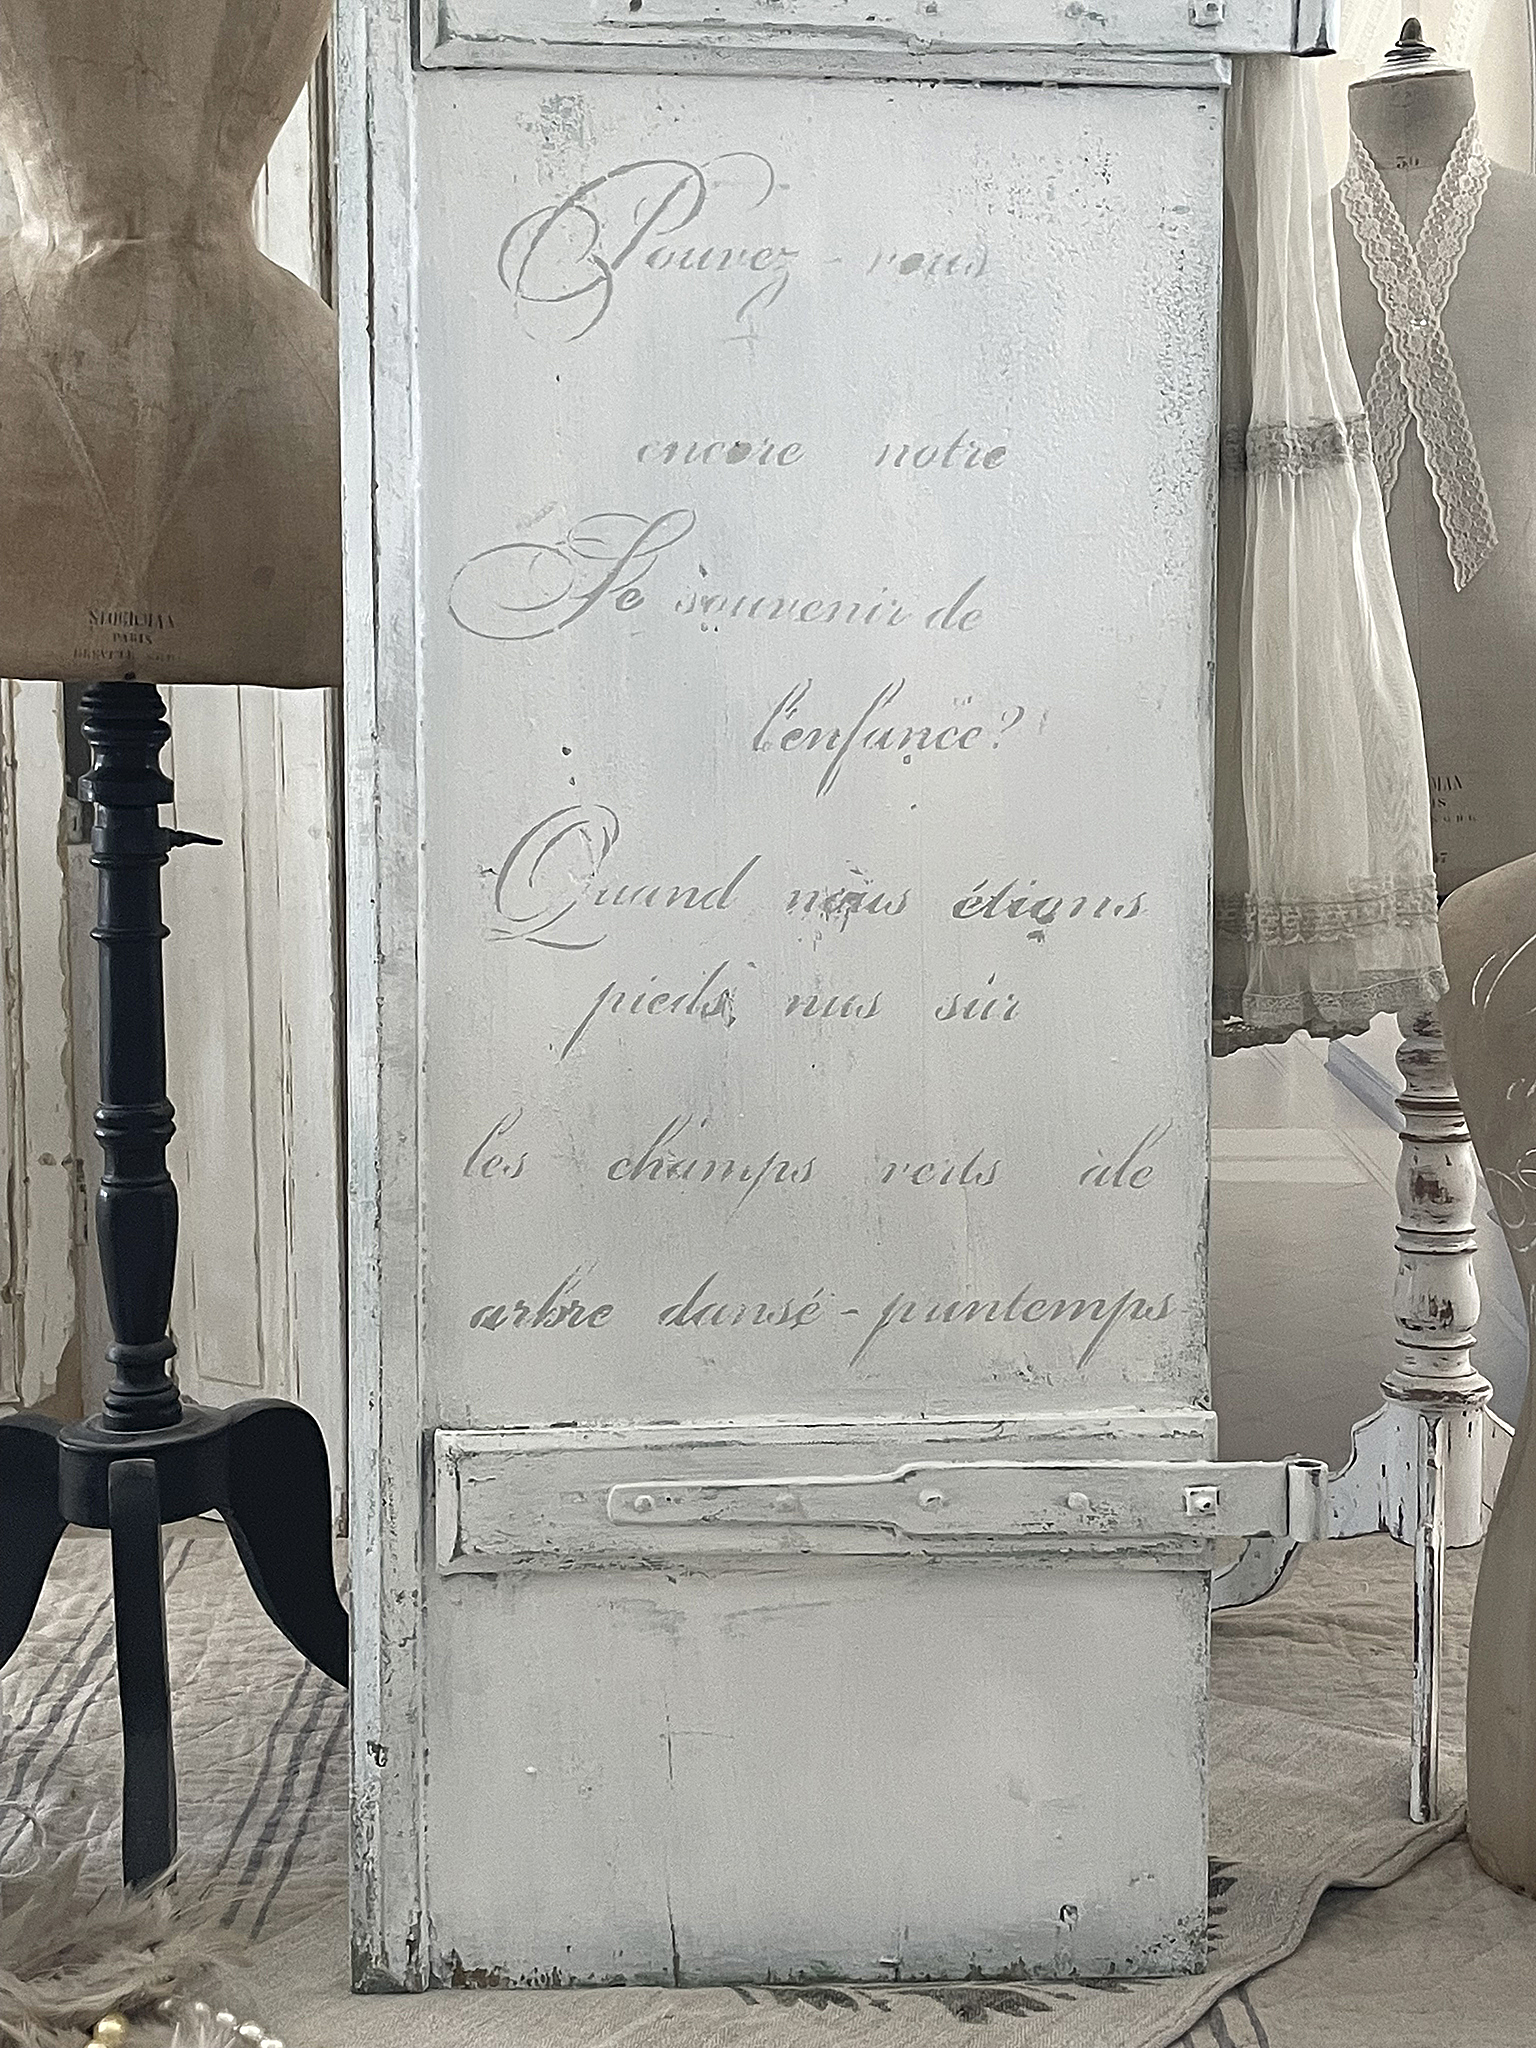 Pouvez-vous
encore notre
Se souvenir de
l'enfance?
Quand nous étions
pieds nus sur
les champs verts de
arbre dansé-printemps
STOCKMAN
PARIS
30